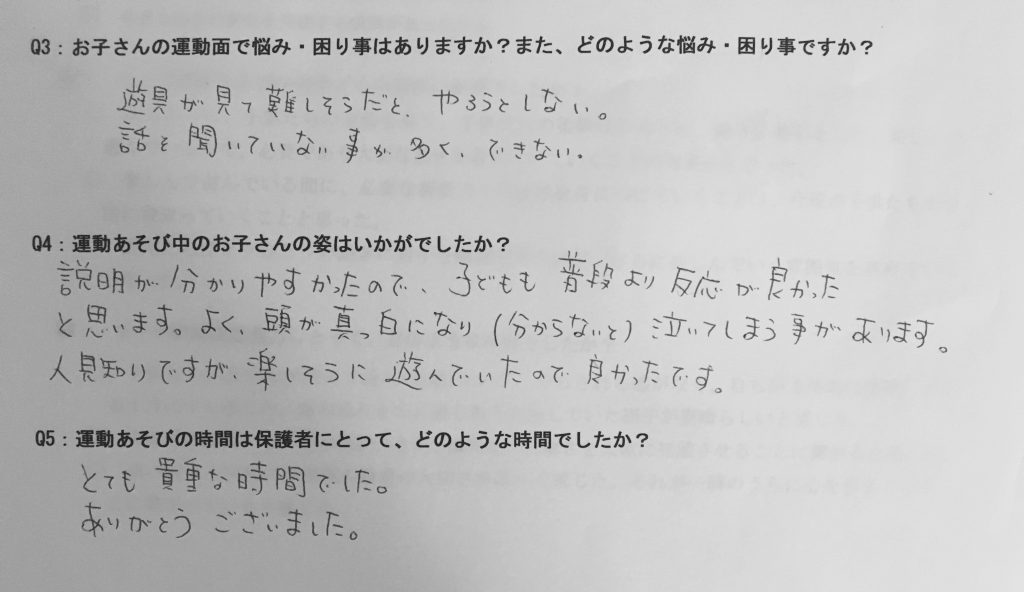 Q3：お子さんの運動面で悩み・困り事はありますか？また、どのような悩み・困り事ですか？
遊具が見て難しそうだと、やろうとしない。
話を聞いていない事が多く、できない。
Q4：運動あそび中のお子さんの姿はいかがでしたか？
説明が分かりやすかったので、子どもも普段より反応が良かった
と思います。よく、頭が真っ白になり（分からないと）泣いてしまう事があります。
人見知りですが、楽しそうに遊んでいたので良かったです。
Q5：運動あそびの時間は保護者にとって、どのような時間でしたか？
とても貴重な時間でした。
ありがとうございました。